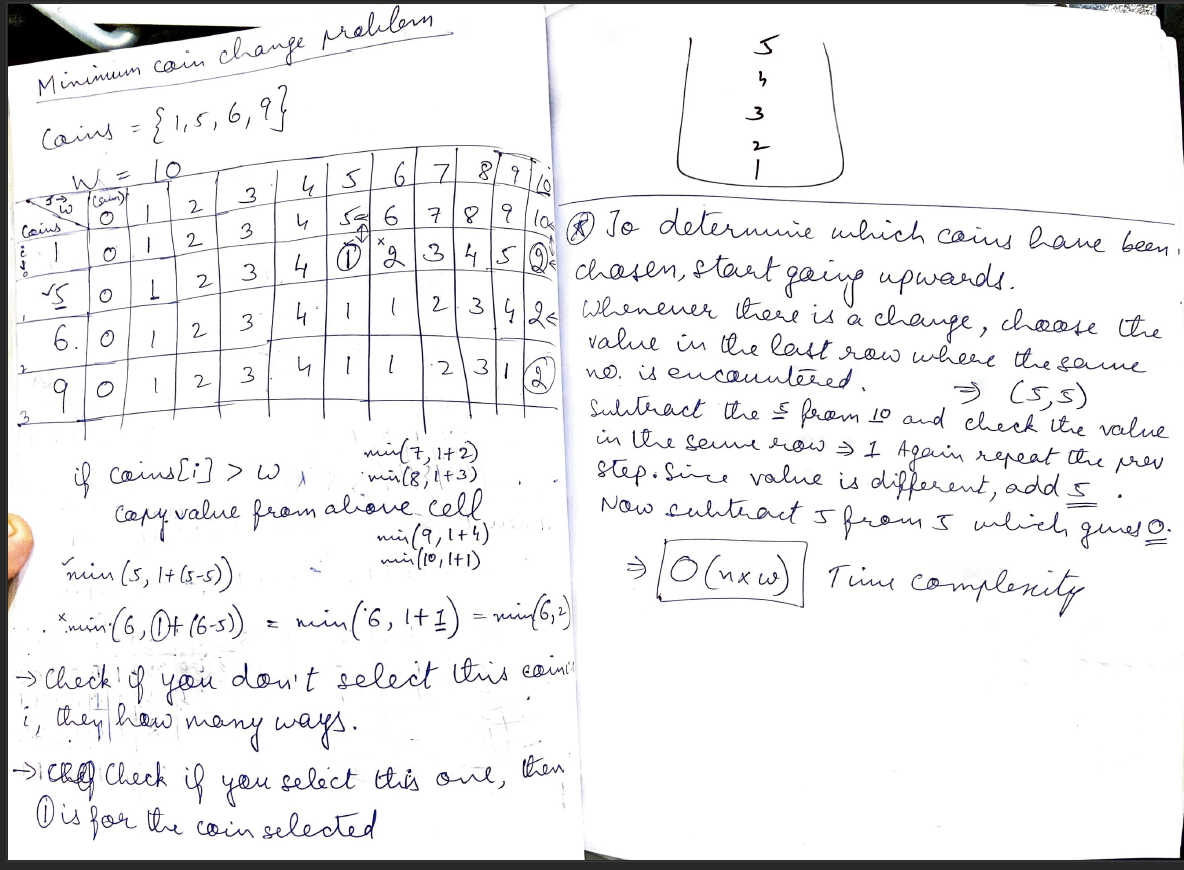 Minimum coin change problem
Coins = {1,5,6,9}
W = 10
coins W (sum) 0 1 2 3 4 5 6 7 8 9 10
1 0 1 2 3 4 5 6 7 8 9 10
✓5 0 1 2 3 4 ① ×2 3 4 5 ②
6. 0 1 2 3 4 1 1 2 3 4 2
9 0 1 2 3 4 1 1 2 3 1 ②
if coins[i] > W,
copy value from above cell
min(7, 1+2)
min(8, 1+3)
min(9, 1+4)
min(10, 1+1)
✓min (5, 1+(5-5))
×min (6, ①+ (6-5)) = min(6, 1+1) = min(6,2)
→ Check if you don't select this coin
i, then how many ways.
→ Check if you select this one, then
① is for the coin selected
5
4
3
2
1
To determine which coins have been
chosen, start going upwards.
Whenever there is a change, choose the
value in the last row where the same
no. is encountered. ⇒ (5,5)
Subtract the 5 from 10 and check the value
in the same row ⇒ 1 Again repeat the prev
step. Since value is different, add 5.
Now subtract 5 from 5 which gives 0.
⇒ O(n×w) Time complexity